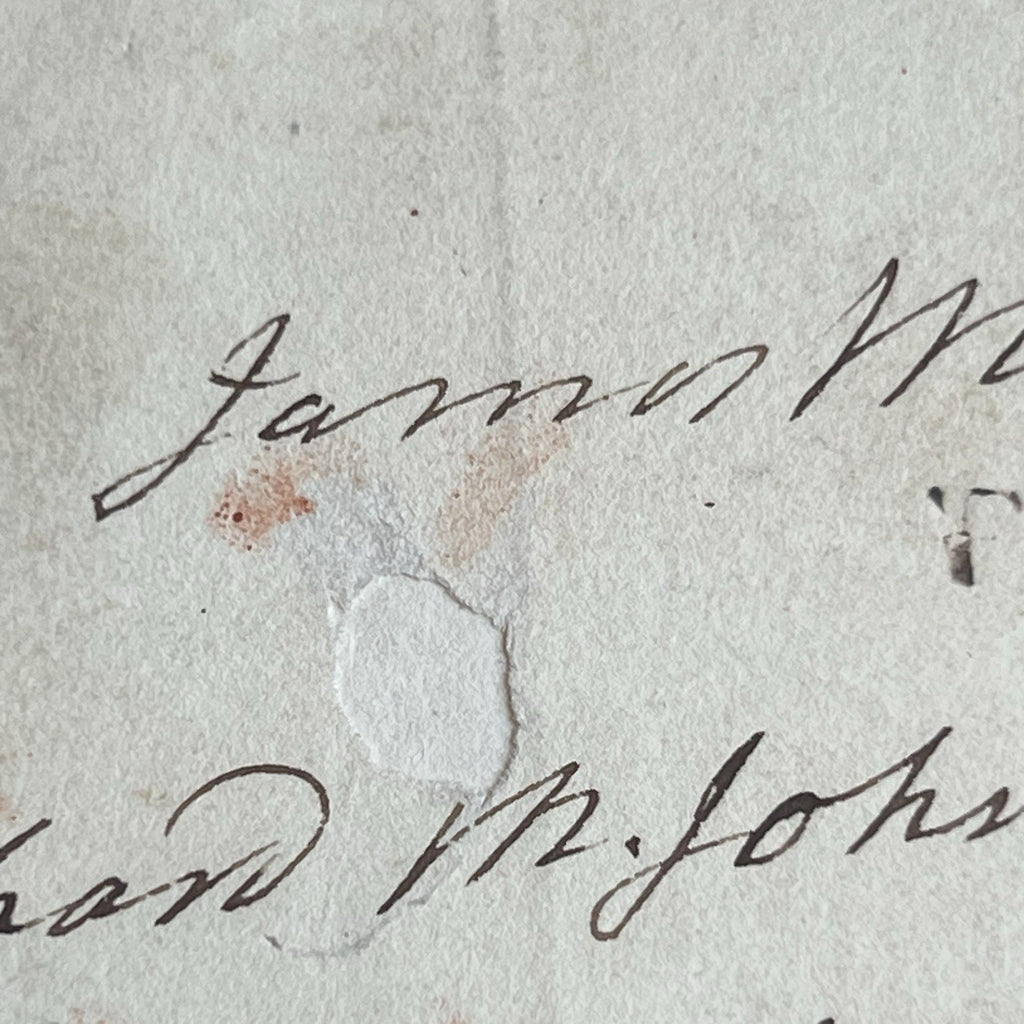 James M
T
hard M. Johns